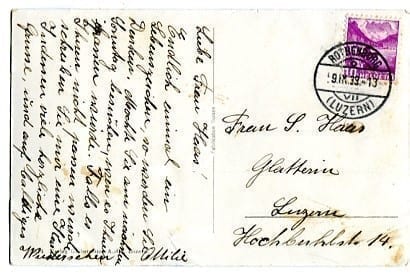 Liebe Frau Haas!
Endlich einmal ein
Lebenszeichen, so werden Sie
Denken. Möchte Sie am nächsten
Sonntag besuchen, wenn es Ihnen
passen würde. Falls es
Ihnen nicht passen würde,
schreiben Sie mir eine Karte
Indessen viele herzliche
Grüsse, und auf baldiges
Wiedersehen Emilie
ROTHENBURG
9.IX.39.-13
(LUZERN)
Frau S. Haas
Glätterin
Luzern
Hochbühlstr. 14